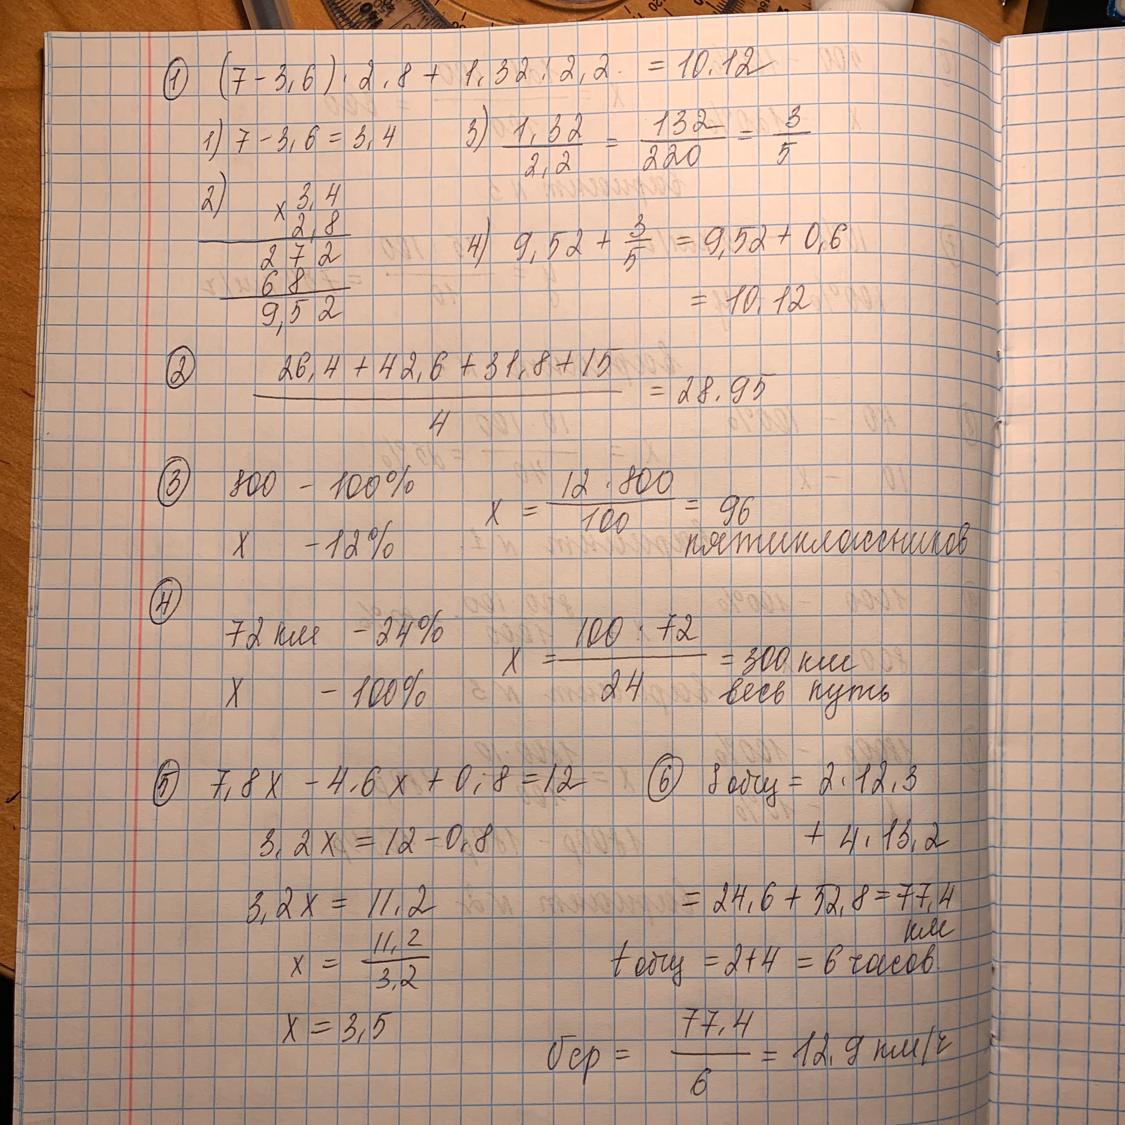 ① (7-3,6)·2,8+1,32:2,2 = 10.12
1) 7-3,6=3,4
3) 1,32/2,2 = 132/220 = 3/5
2) × 3,4
2,8
272
68
9,52
4) 9,52 + 3/5 = 9,52 + 0,6
= 10.12
② 26,4 + 42,6 + 31,8 + 15 / 4 = 28.95
③ 800 - 100%
x - 12%
x = 12·800/100 = 96
пятиклассников
④ 72 км - 24%
x - 100%
x = 100·72/24 = 300 км
весь путь
⑤ 7,8x - 4.6x + 0,8 = 12
3,2x = 12 - 0,8
3,2x = 11,2
x = 11,2/3,2
x = 3,5
⑥ Sобщ = 2·12,3
+ 4·13,2
= 24,6 + 52,8 = 77,4
км
tобщ = 2+4 = 6 часов
υср = 77,4/6 = 12,9 км/ч